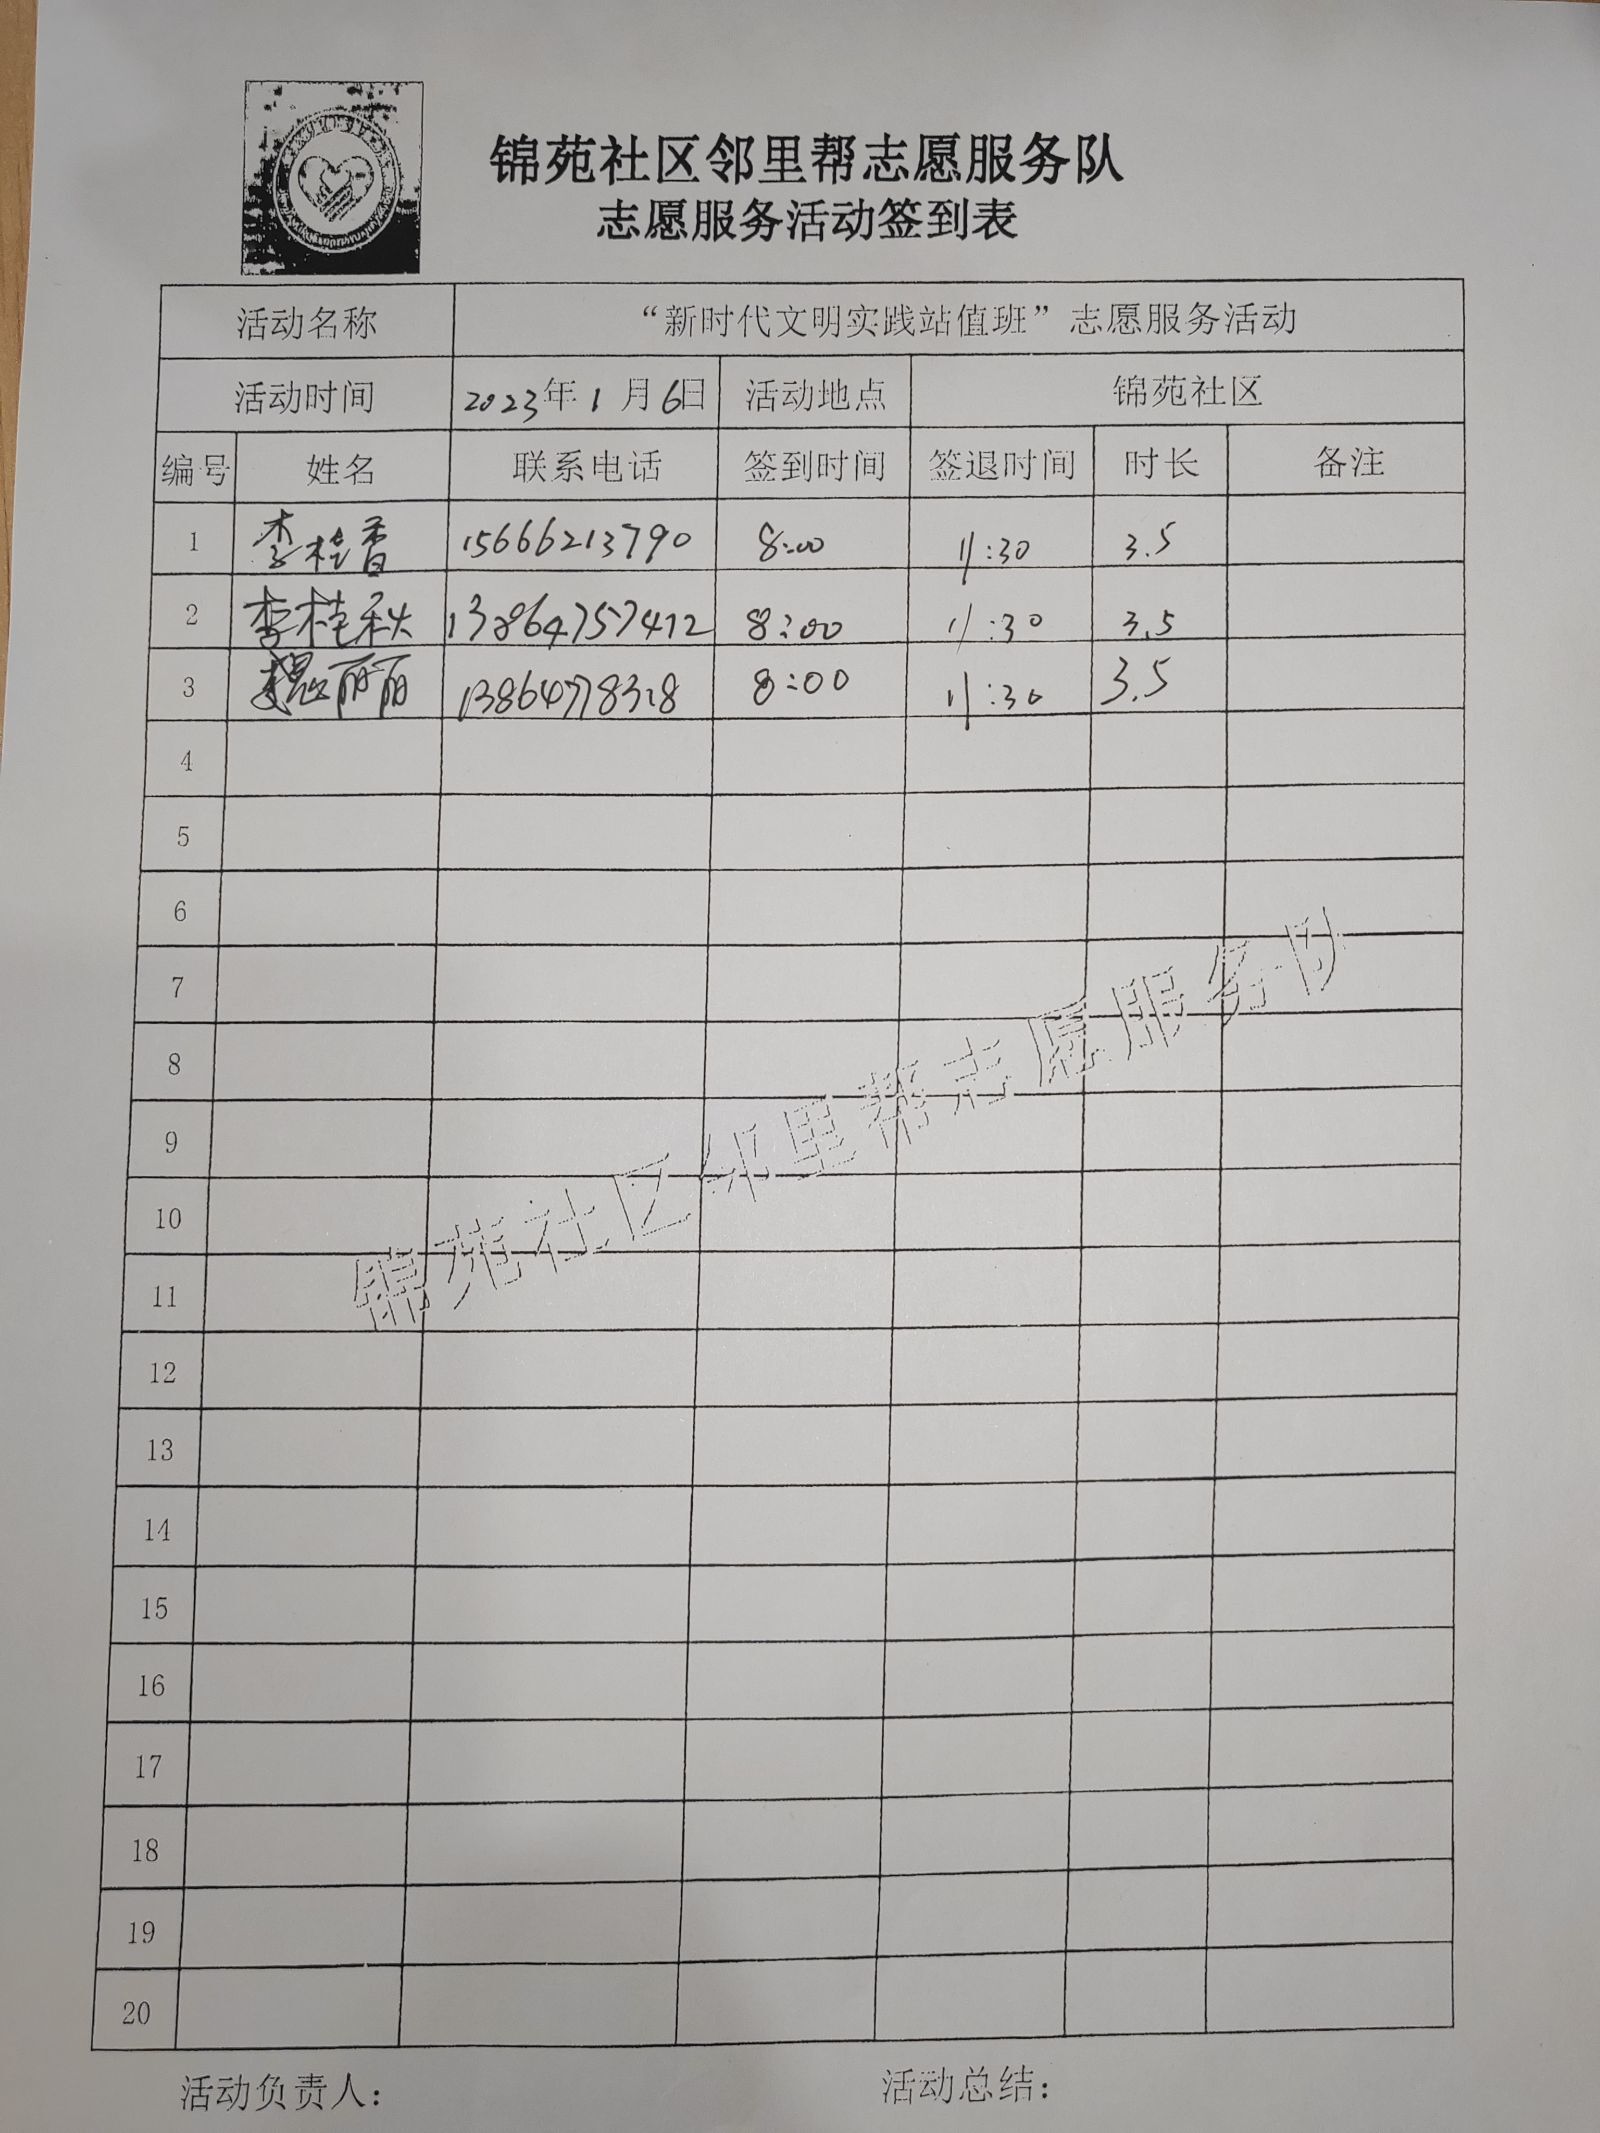 锦苑社区邻里帮志愿服务队
志愿服务活动签到表
活动名称 “新时代文明实践站值班”志愿服务活动
活动时间 2023年1月6日 活动地点 锦苑社区
编号 姓名 联系电话 签到时间 签退时间 时长 备注
1 李桂香 15666213790 8:00 11:30 3.5
2 李桂秋 13864757412 8:00 11:30 3.5
3 魏丽丽 13864778318 8:00 11:30 3.5
4
5
6
7
8
9
10
11
12
13
14
15
16
17
18
19
20
锦苑社区邻里帮志愿服务队
活动负责人: 活动总结: